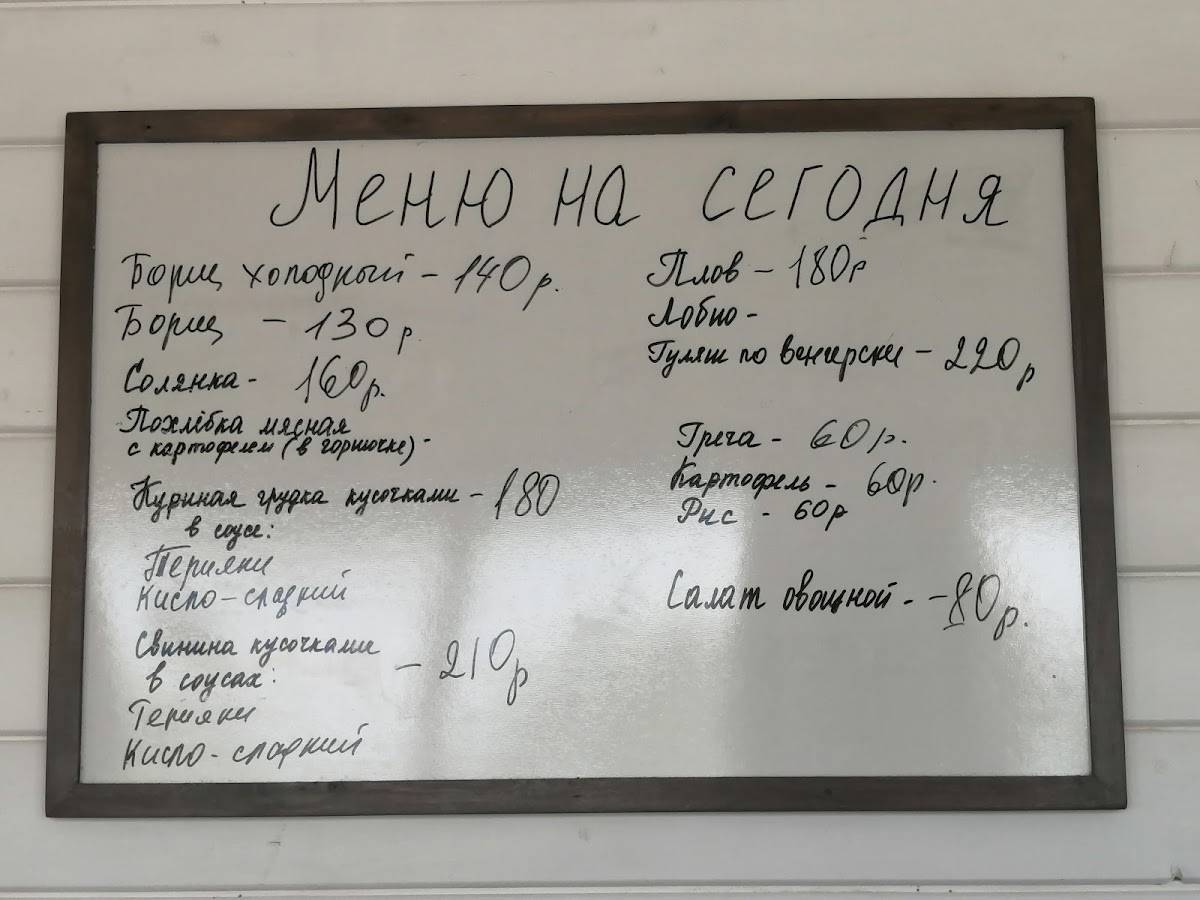 Меню на сегодня
Борщ холодный - 140р.
Борщ - 130р.
Солянка - 160р.
Похлёбка мясная
с картофелем (в горшочке) -
Куриная грудка кусочками - 180
в соусе:
Терияки
Кисло-сладкий
Свинина кусочками
в соусах: - 210р
Терияки
Кисло-сладкий
Плов - 180р
Лобио -
Гуляш по венгерски - 220р
Греча - 60р.
Картофель - 60р.
Рис - 60р
Салат овощной. - 80р.